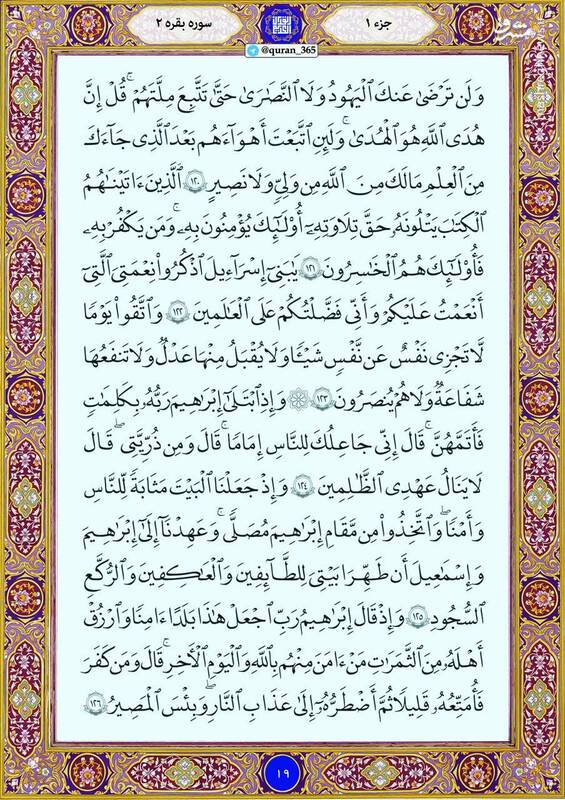 جزء ۱
سوره بقره ۲
@quran_365
وَلَن تَرْضَىٰ عَنكَ ٱلْيَهُودُ وَلَا ٱلنَّصَٰرَىٰ حَتَّىٰ تَتَّبِعَ مِلَّتَهُمْ ۗ قُلْ إِنَّ
هُدَى ٱللَّهِ هُوَ ٱلْهُدَىٰ ۗ وَلَئِنِ ٱتَّبَعْتَ أَهْوَآءَهُم بَعْدَ ٱلَّذِى جَآءَكَ
مِنَ ٱلْعِلْمِ مَا لَكَ مِنَ ٱللَّهِ مِن وَلِىٍّ وَلَا نَصِيرٍ ۱۲۰ ٱلَّذِينَ ءَاتَيْنَٰهُمُ
ٱلْكِتَٰبَ يَتْلُونَهُۥ حَقَّ تِلَاوَتِهِۦٓ أُو۟لَٰٓئِكَ يُؤْمِنُونَ بِهِۦ ۗ وَمَن يَكْفُرْ بِهِۦ
فَأُو۟لَٰٓئِكَ هُمُ ٱلْخَٰسِرُونَ ۱۲۱ يَٰبَنِىٓ إِسْرَٰٓءِيلَ ٱذْكُرُوا۟ نِعْمَتِىَ ٱلَّتِىٓ
أَنْعَمْتُ عَلَيْكُمْ وَأَنِّى فَضَّلْتُكُمْ عَلَى ٱلْعَٰلَمِينَ ۱۲۲ وَٱتَّقُوا۟ يَوْمًا
لَّا تَجْزِى نَفْسٌ عَن نَّفْسٍ شَيْـًٔا وَلَا يُقْبَلُ مِنْهَا عَدْلٌ وَلَا تَنفَعُهَا
شَفَٰعَةٌ وَلَا هُمْ يُنصَرُونَ ۱۲۳ ۞ وَإِذِ ٱبْتَلَىٰٓ إِبْرَٰهِيمَ رَبُّهُۥ بِكَلِمَٰتٍ
فَأَتَمَّهُنَّ ۖ قَالَ إِنِّى جَاعِلُكَ لِلنَّاسِ إِمَامًا ۖ قَالَ وَمِن ذُرِّيَّتِى ۖ قَالَ
لَا يَنَالُ عَهْدِى ٱلظَّٰلِمِينَ ۱۲۴ وَإِذْ جَعَلْنَا ٱلْبَيْتَ مَثَابَةً لِّلنَّاسِ
وَأَمْنًا وَٱتَّخِذُوا۟ مِن مَّقَامِ إِبْرَٰهِيمَ مُصَلًّى ۖ وَعَهِدْنَآ إِلَىٰٓ إِبْرَٰهِيمَ
وَإِسْمَٰعِيلَ أَن طَهِّرَا بَيْتِىَ لِلطَّآئِفِينَ وَٱلْعَٰكِفِينَ وَٱلرُّكَّعِ
ٱلسُّجُودِ ۱۲۵ وَإِذْ قَالَ إِبْرَٰهِيمُ رَبِّ ٱجْعَلْ هَٰذَا بَلَدًا ءَامِنًا وَٱرْزُقْ
أَهْلَهُۥ مِنَ ٱلثَّمَرَٰتِ مَنْ ءَامَنَ مِنْهُم بِٱللَّهِ وَٱلْيَوْمِ ٱلْأَخِرِ ۖ قَالَ وَمَن كَفَرَ
فَأُمَتِّعُهُۥ قَلِيلًا ثُمَّ أَضْطَرُّهُۥٓ إِلَىٰ عَذَابِ ٱلنَّارِ ۖ وَبِئْسَ ٱلْمَصِيرُ ۱۲۶
۱۹